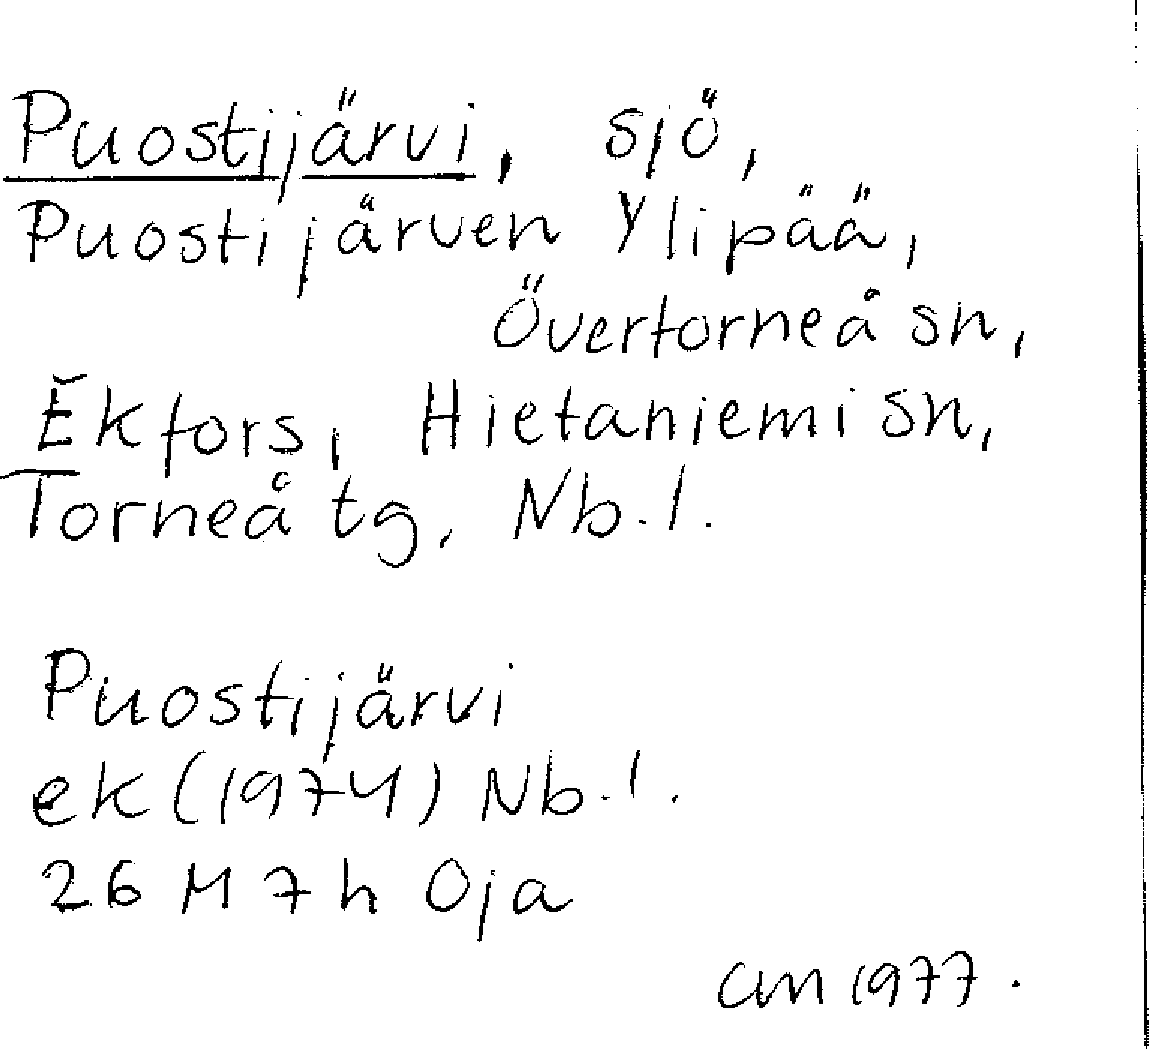 Puostijärvi, sjö,
Puostijärven Ylipää,
Övertorneå sn,
Ekfors, Hietaniemi sn,
Torneå tg, Nb.l.
Puostijärvi
ek (1974) Nb.l.
26 M 7 h Oja
CM 1977.